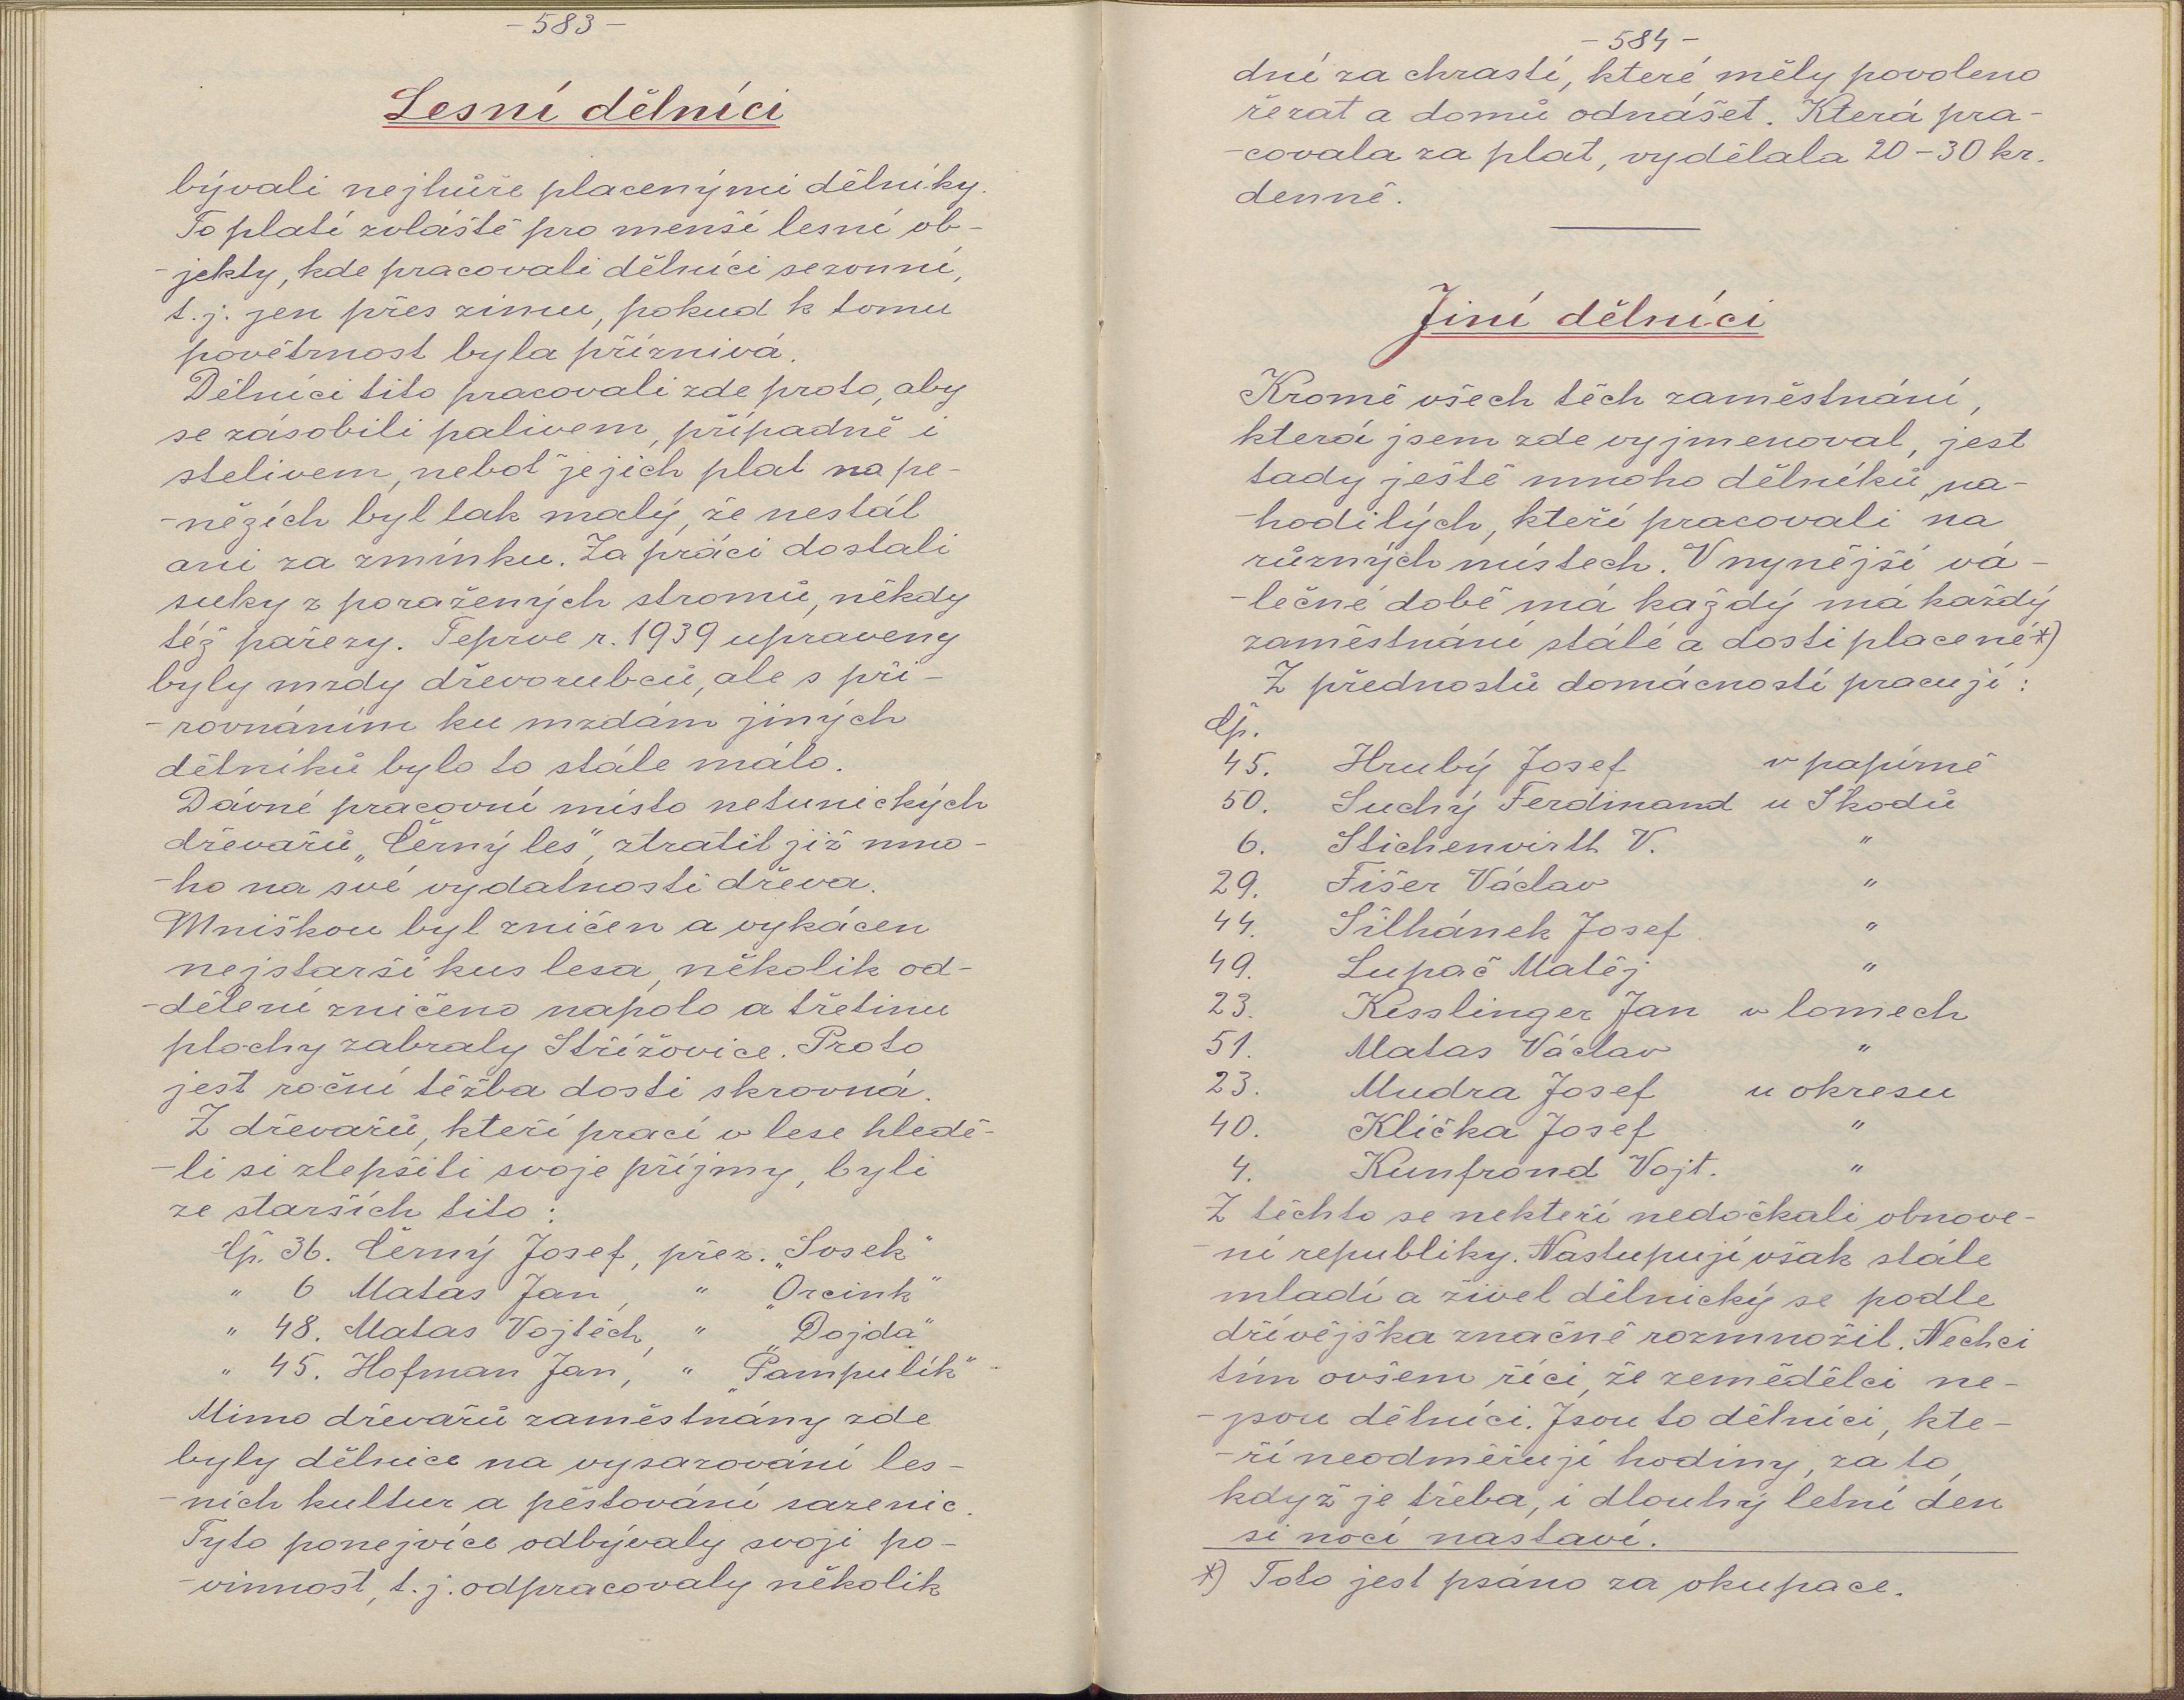 - 583 -
Lesní dělníci
bývali nejhůře placenými dělníky.
To platí zvláště pro menší lesní ob-
-jekty, kde pracovali dělníci sezonní,
t.j. jen přes zimu, pokud k tomu
povětrnost byla příznivá.
Dělníci tito pracovali zde proto, aby
se zásobili palivem, případně i
stelivem, neboť jejich plat na pe-
-nězích byl tak malý, že nestál
ani za zmínku. Za práci dostali
suky z poražených stromů, někdy
též pařezy. Teprve r. 1939 upraveny
byly mzdy dřevorubců, ale s při-
-rovnáním ku mzdám jiných
dělníků bylo to stále málo.
Dávné pracovní místo netunických
dřevařů „Černý les", ztratil již mno-
-ho na své vydatnosti dřeva.
Mniškou byl zničen a vykácen
nejstarší kus lesa, několik od-
-dělení zničeno napolo a třetinu
plochy zabraly Střížovice. Proto
jest roční těžba dosti skrovná.
Z dřevařů, kteří prací v lese hledě-
-li si zlepšiti svoje příjmy, byli
ze starších tito:
Čp. 36. Černý Josef, přez. „Sosek"
" 6 Matas Jan, " „Orcink"
" 48. Matas Vojtěch, " „Dojda"
" 45. Hofman Jan, " „Pampulík"
Mimo dřevařů zaměstnány zde
byly dělnice na vysazování les-
-ních kultur a pěstování sazenic.
Tyto ponejvíce odbývaly svoji po-
-vinnost, t.j. odpracovaly několik
- 584 -
dní za chrastí, které měly povoleno
řezat a domů odnášet. Která pra-
-covala za plat, vydělala 20-30 kr.
denně.
Jiní dělníci
Kromě všech těch zaměstnání,
která jsem zde vyjmenoval, jest
tady ještě mnoho dělníků na-
-hodilých, kteří pracovali na
různých místech. V nynější vá-
-lečné době má každý má každý
zaměstnání stálé a dosti placené *)
Z přednostů domácností pracují:
Čp.
45. Hrubý Josef v papírně
50. Suchý Ferdinand u Škodů
6. Stichenvirth V. "
29. Fišer Václav "
44. Šilhánek Josef "
49. Lupač Matěj "
23. Kesslinger Jan v lomech
51. Matas Václav "
23. Mudra Josef u okresu
40. Klička Josef "
4. Kunfrond Vojt. "
Z těchto se nekteří nedočkali obnove-
-ní republiky. Nastupují však stále
mladí a živel dělnický se podle
dřívějška značně rozmnožil. Nechci
tím ovšem říci, že zemědělci ne-
-jsou dělníci. Jsou to dělníci, kte-
-ří neodměřují hodiny, za to,
když je třeba, i dlouhý letní den
si nocí nastaví.
*) Toto jest psáno za okupace.